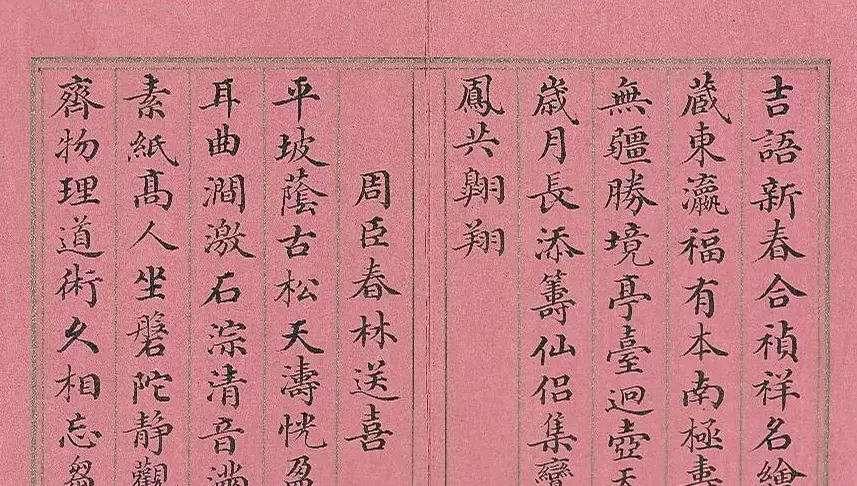 吉語新春合禎祥名繪
蔵東瀛福有本南極壽
無疆勝境亭臺迥壺天
歳月長添籌仙侣集鸞
鳳共翺翔
周臣春林送喜
平坡蔭古松天濤恍盈
耳曲澗激石淙清音滿
素紙髙人坐磐陀静觀
齊物理道術久相忘芻